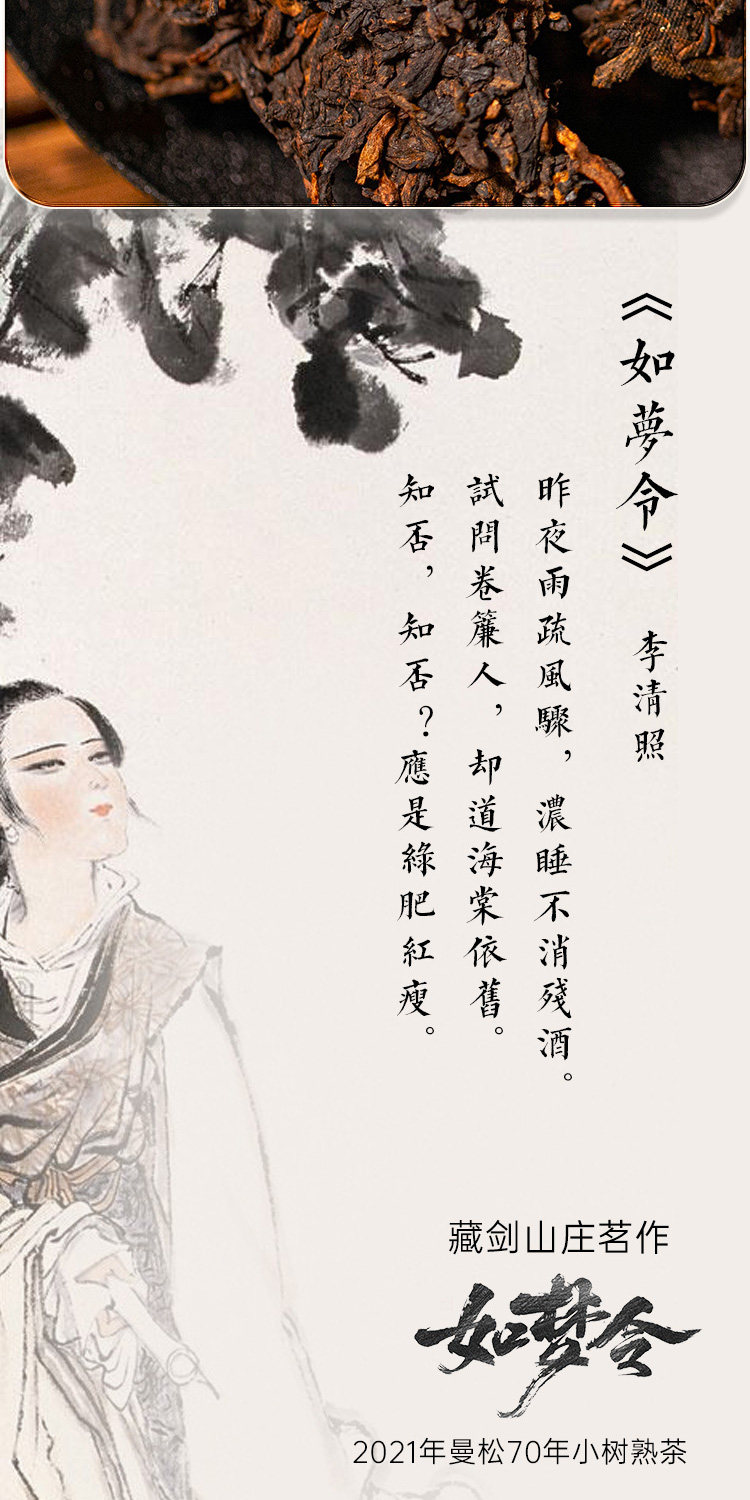 《如夢令》
李清照
昨夜雨疏風驟，濃睡不消殘酒。
試問卷簾人，却道海棠依舊。
知否，知否？應是綠肥紅瘦。
藏剑山庄茗作
如梦令
2021年曼松70年小树熟茶